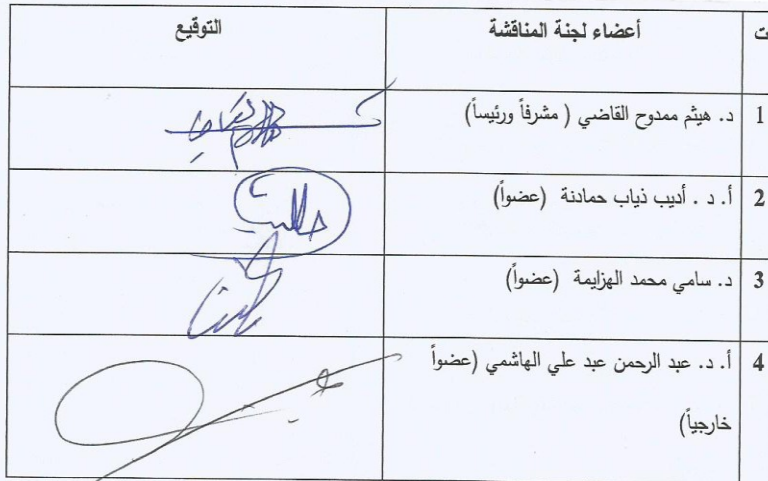 ت أعضاء لجنة المناقشة التوقيع
1 د. هيثم ممدوح القاضي ( مشرفاً ورئيساً)
2 أ. د . أديب ذياب حمادنة (عضواً)
3 د. سامي محمد الهزايمة (عضواً)
4 أ. د. عبد الرحمن عبد علي الهاشمي (عضواً
خارجياً)